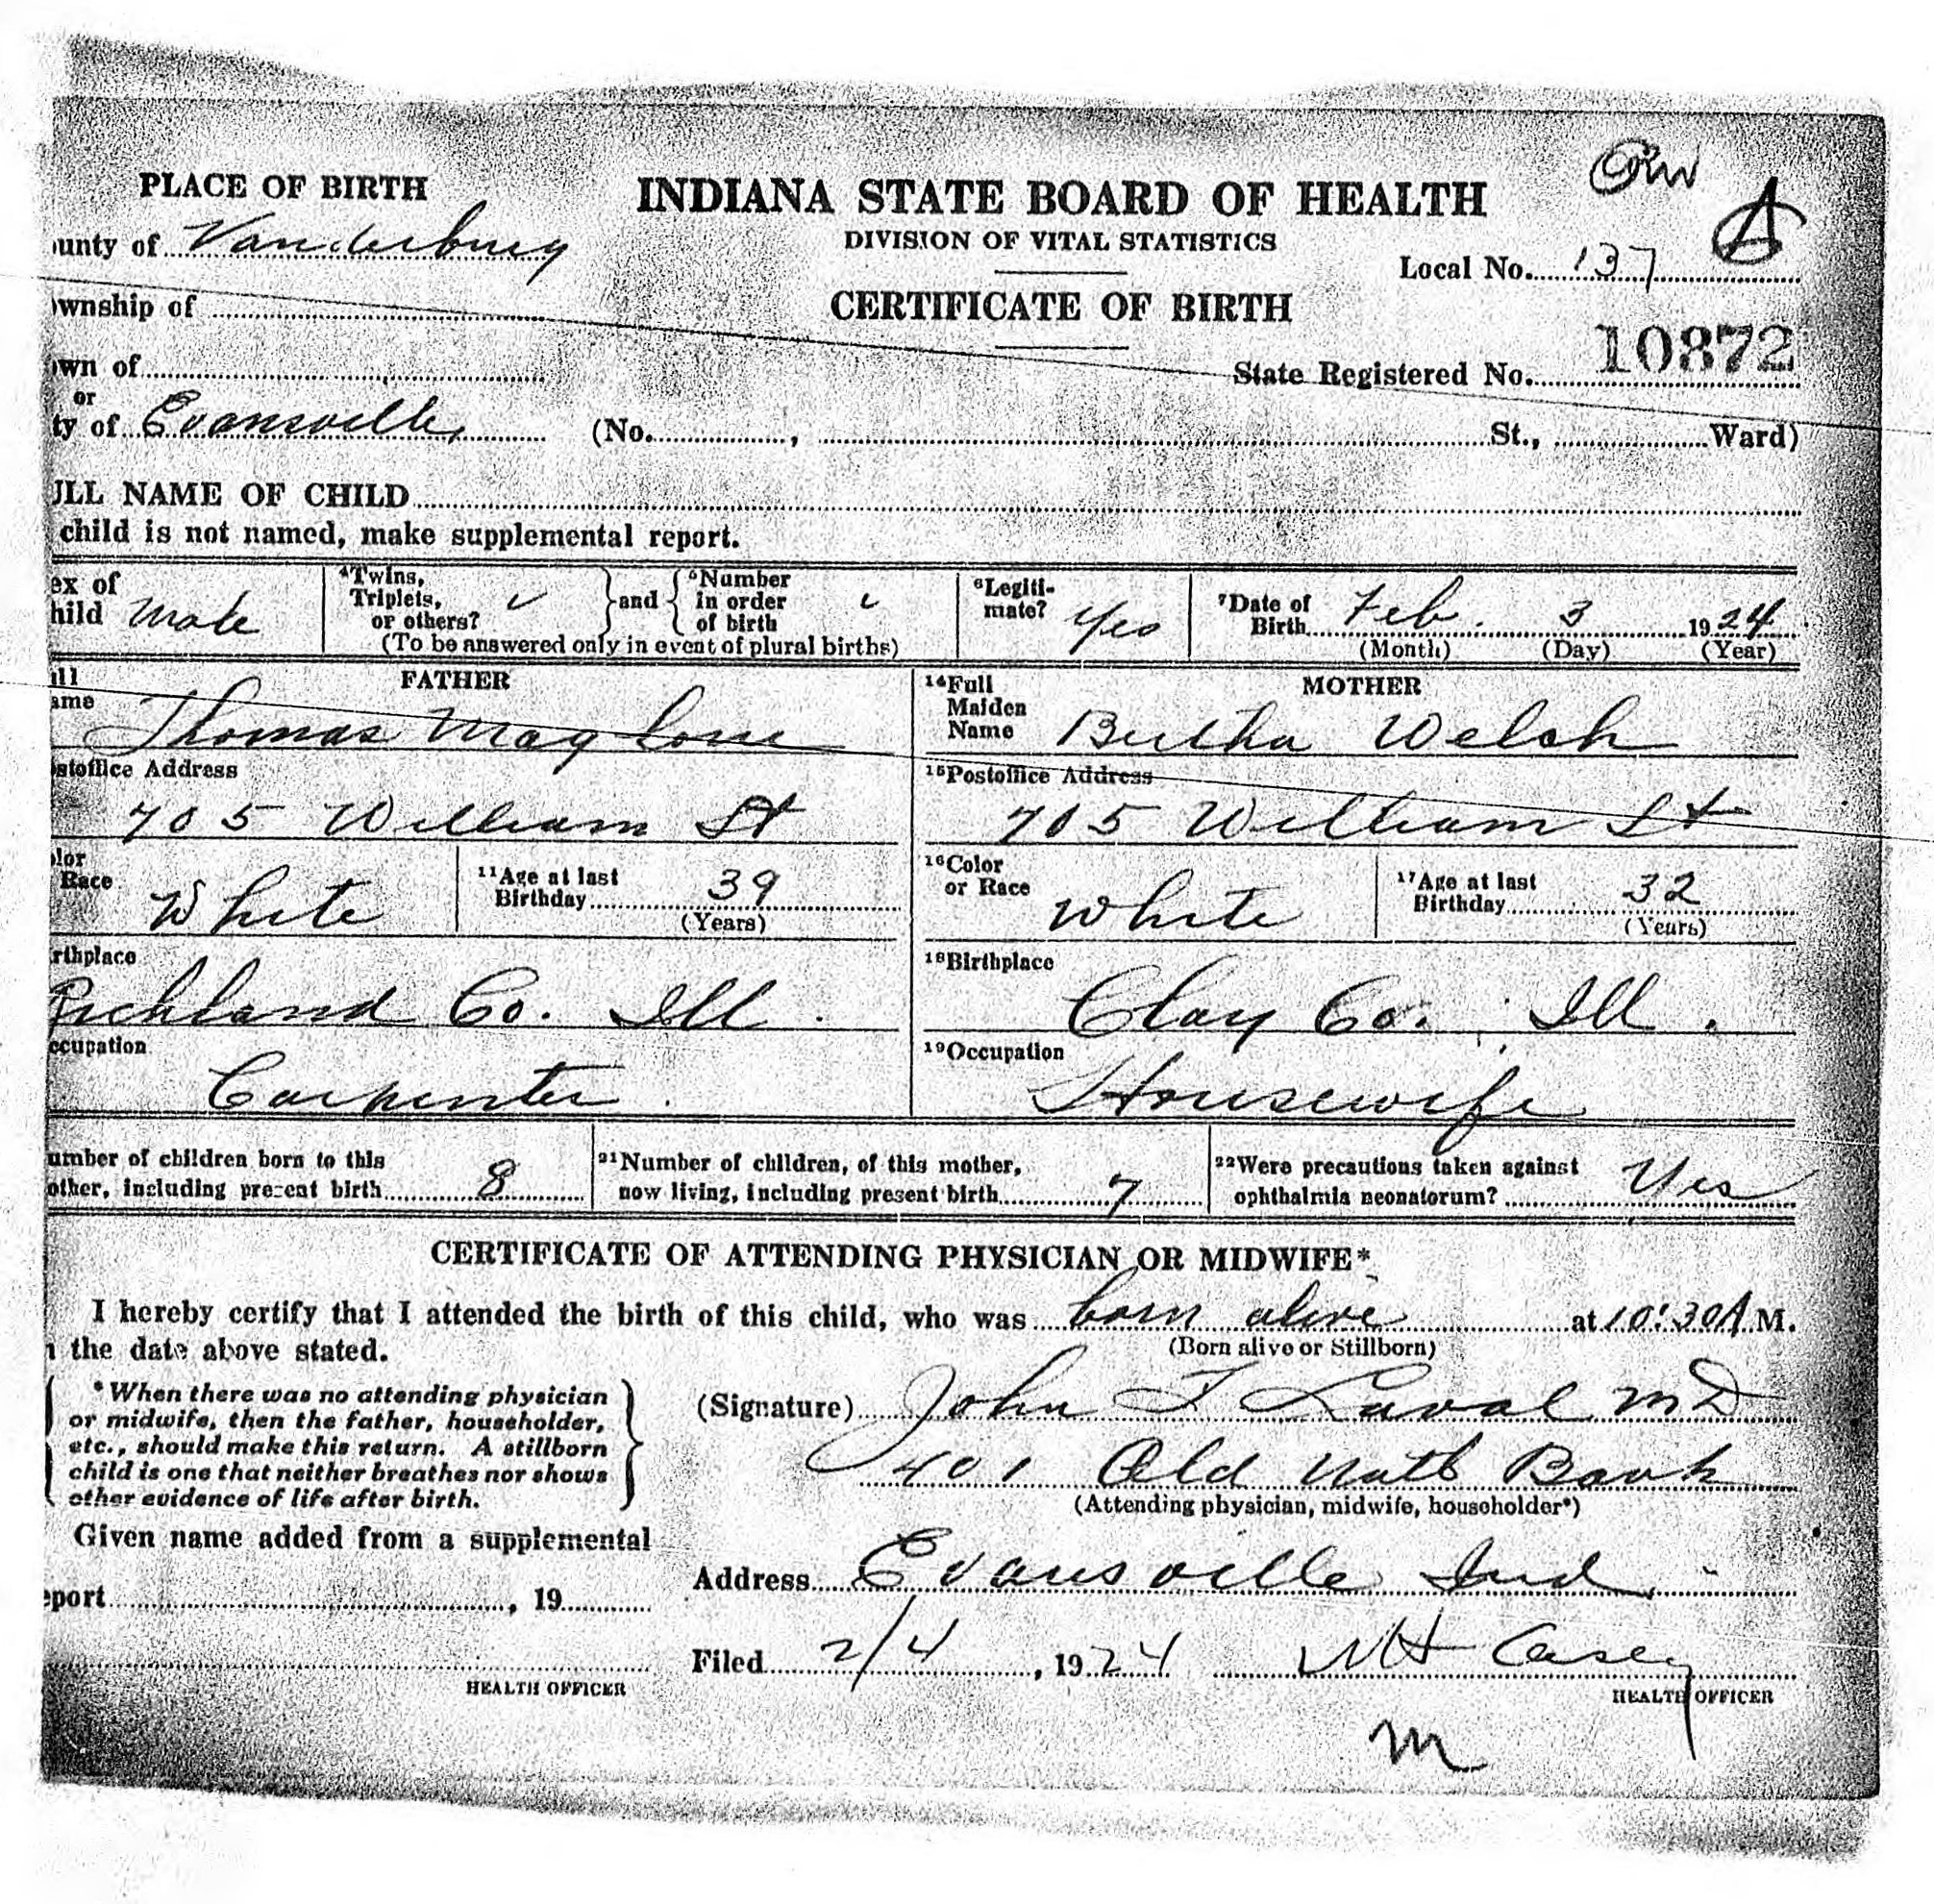 PLACE OF BIRTH
INDIANA STATE BOARD OF HEALTH
ounty of Vanderburg
DIVISION OF VITAL STATISTICS
Local No. 137
A
ownship of
CERTIFICATE OF BIRTH
own of
State Registered No. 10872
or
ty of Evansville
(No. , St., Ward)
ULL NAME OF CHILD
child is not named, make supplemental report.
ex of hild Male
4 Twins, Triplets, or others? and 5 Number in order of birth
(To be answered only in event of plural births)
6 Legiti-mate? Yes
7 Date of Birth Feb. 3 1924
(Month) (Day) (Year)
FATHER
ull ame Thomas Maglone
ostoffice Address
705 William St
olor Race White
11 Age at last Birthday 39
(Years)
rthplace
Richland Co. Ill.
ccupation
Carpenter.
MOTHER
14 Full Maiden Name Bertha Welsh
15 Postoffice Address
705 William St
16 Color or Race White
17 Age at last Birthday 32
(Years)
18 Birthplace
Clay Co. Ill.
19 Occupation
Housewife
umber of children born to this other, including present birth 8
21 Number of children, of this mother, now living, including present birth 7
22 Were precautions taken against ophthalmia neonatorum? Yes
CERTIFICATE OF ATTENDING PHYSICIAN OR MIDWIFE*
I hereby certify that I attended the birth of this child, who was born alive at 10:30 A M.
(Born alive or Stillborn)
n the date above stated.
*When there was no attending physician
or midwife, then the father, householder,
etc., should make this return. A stillborn
child is one that neither breathes nor shows
other evidence of life after birth.
(Signature) John F Laval MD
401 Old Natl Bank
(Attending physician, midwife, householder*)
Given name added from a supplemental
eport , 19
HEALTH OFFICER
Address Evansville Ind.
Filed 2/4, 1924 Casey
HEALTH OFFICER
m